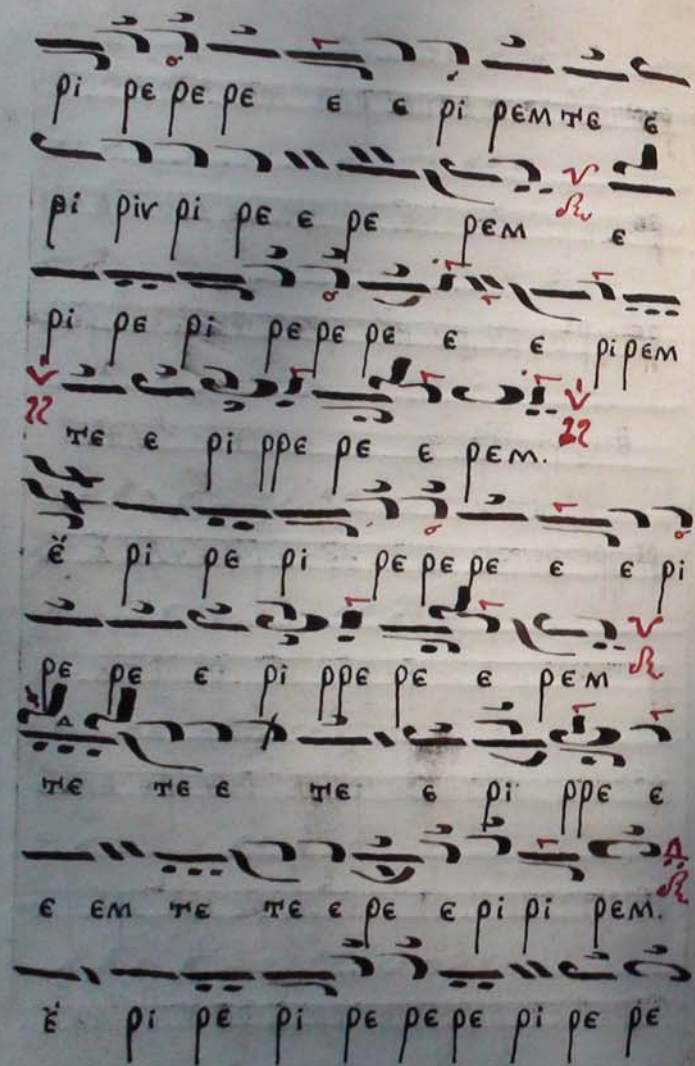 ρι ρε ρε ρε ε ε ρι ρεμ τε ε
ρι ριν ρι ρε ε ρε ρεμ ε
ρι ρε ρι ρε ρε ρε ε ε ρι ρεμ
τε ε ρι ρρε ρε ε ρεμ.
ἒ ρι ρε ρι ρε ρε ρε ε ε ρι
ρε ρε ε ρι ρρε ρε ε ρεμ
τε τε ε τε ε ρι ρρε ε
ε εμ τε τε ε ρε ε ρι ρι ρεμ.
ἒ ρι ρε ρι ρε ρε ρε ρι ρε ρε